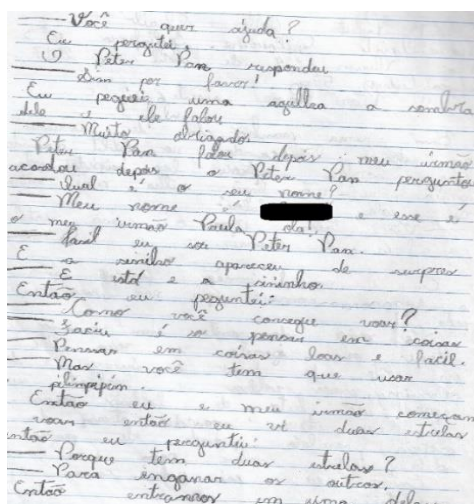 — Você quer ajuda?
Eu perguntei,
O Peter Pan respondeu
— Sim por favor!
Eu peguei uma agulha a sombra
dele e ele falou
— Muito obrigado
Peter Pan falou depois meu irmão
acordou depois o Peter Pan perguntou
— Qual é o seu nome?
— Meu nome é e esse é
o meu irmão Paulo, ola!
— facil eu sou Peter Pan.
E a sinilho apareceu de surpres
— E está e a sininho.
Então eu peguntei:
— Como você consegue voar?
— Faciu é so pensar em coisas
— Pensar em coisas boas e facil.
— Mas você tem que usar
pilimpipim.
Então eu e meu irmão começan
voar então eu vi duas estrelas
então eu perguntei:
— Porque tem duas estrelas?
— Para enganar os outros.
Então entramos em uma delas